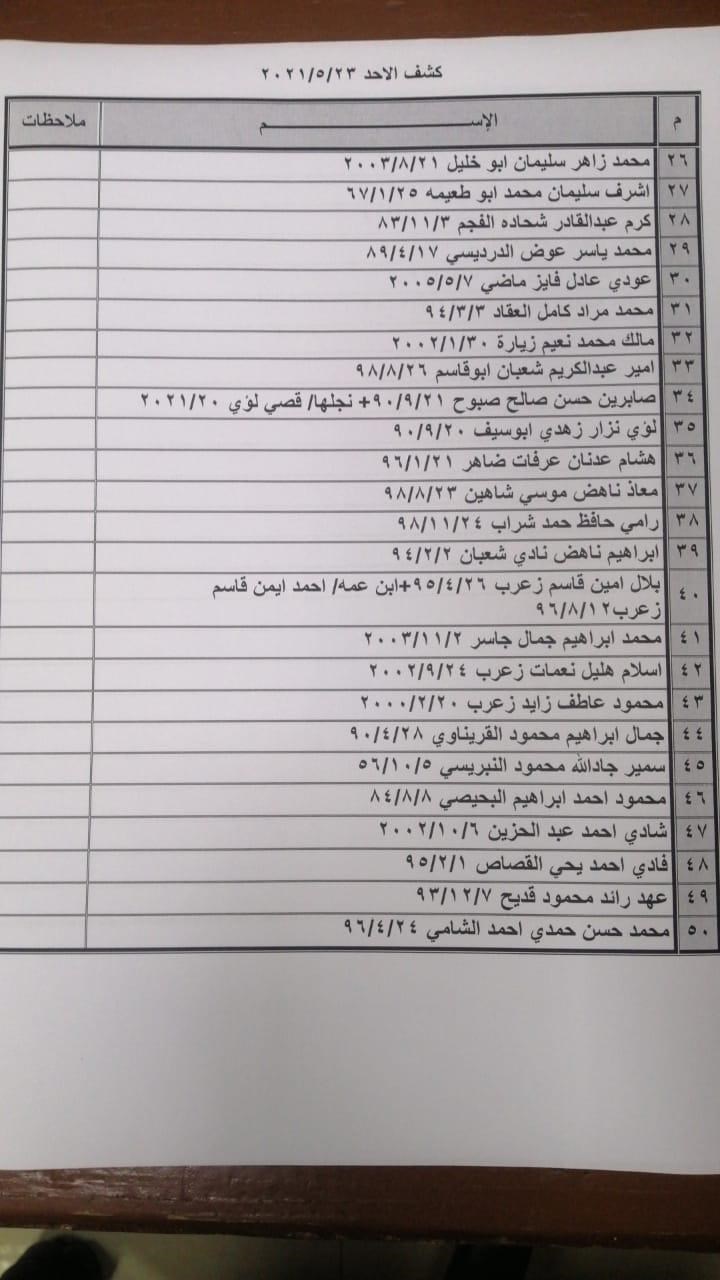 كشف الاحد ٢٠٢١/٥/٢٣
م الإســـــــــــــــــــــم ملاحظات
٢٦ محمد زاهر سليمان ابو خليل ٢٠٠٣/٨/٢١
٢٧ اشرف سليمان محمد ابو طعيمه ٦٧/١/٢٥
٢٨ كرم عبدالقادر شحاده الفجم ٨٣/١١/٣
٢٩ محمد ياسر عوض الدرديسي ٨٩/٤/١٧
٣٠ عودي عادل فايز ماضي ٢٠٠٥/٥/٧
٣١ محمد مراد كامل العقاد ٩٤/٣/٣
٣٢ مالك محمد نعيم زيارة ٢٠٠٢/١/٣٠
٣٣ امير عبدالكريم شعبان ابوقاسم ٩٨/٨/٢٦
٣٤ صابرين حسن صالح صبوح ٩٠/٩/٢١+ نجلها/ قصي لؤي ٢٠٢١/٢٠
٣٥ لؤي نزار زهدي ابوسيف ٩٠/٩/٢٠
٣٦ هشام عدنان عرفات ضاهر ٩٦/١/٢١
٣٧ معاذ ناهض موسي شاهين ٩٨/٨/٢٣
٣٨ رامي حافظ حمد شراب ٩٨/١١/٢٤
٣٩ ابراهيم ناهض نادي شعبان ٩٤/٢/٢
٤٠ بلال امين قاسم زعرب ٩٥/٤/٢٦+ابن عمه/ احمد ايمن قاسم
زعرب٩٦/٨/١٢
٤١ محمد ابراهيم جمال جاسر ٢٠٠٣/١١/٢
٤٢ اسلام هليل نعمات زعرب ٢٠٠٢/٩/٢٤
٤٣ محمود عاطف زايد زعرب ٢٠٠٠/٢/٢٠
٤٤ جمال ابراهيم محمود القريناوي ٩٠/٤/٢٨
٤٥ سمير جادالله محمود النبريسي ٥٦/١٠/٥
٤٦ محمود احمد ابراهيم البحيصي ٨٤/٨/٨
٤٧ شادي احمد عبد الحزين ٢٠٠٢/١٠/٦
٤٨ فادي احمد يحي القصاص ٩٥/٢/١
٤٩ عهد رائد محمود قديح ٩٣/١٢/٧
٥٠ محمد حسن حمدي احمد الشامي ٩٦/٤/٢٤